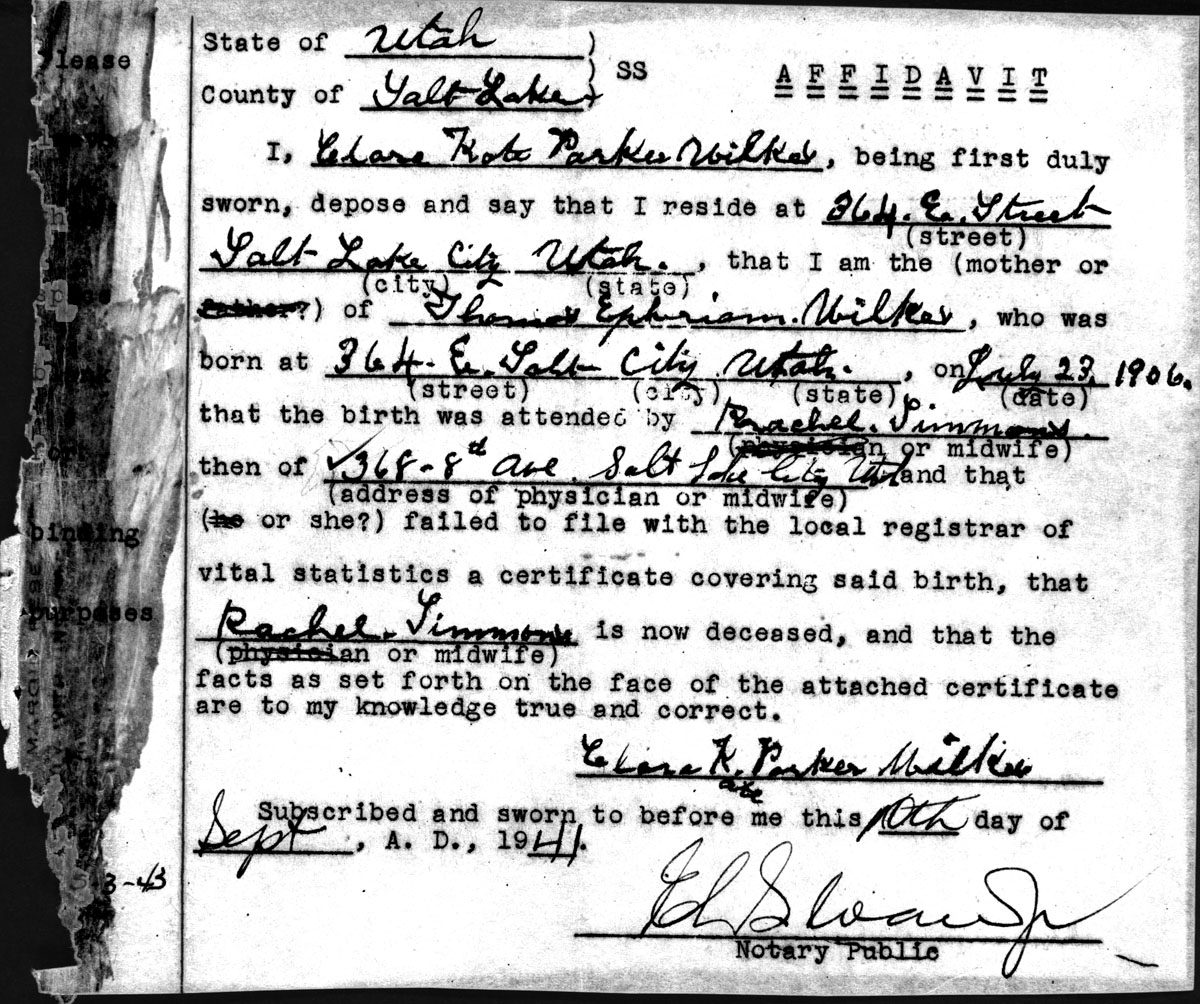 State of Utah )
County of Salt Lake ) SS A F F I D A V I T
I, Clara Kate Parker Wilkes, being first duly
sworn, depose and say that I reside at 364. E. Street
(street)
Salt Lake City Utah. , that I am the (mother or
(city) (state)
father?) of Thomas Ephriam. Wilkes , who was
born at 364. E. Salt City Utah. , on July 23 1906.
(street) (city) (state) (date)
that the birth was attended by Rachel. Simmons.
(physician or midwife)
then of 368-8th Ave. Salt Lake City Utah and that
(address of physician or midwife)
(he or she?) failed to file with the local registrar of
vital statistics a certificate covering said birth, that
Rachel. Simmons is now deceased, and that the
(physician or midwife)
facts as set forth on the face of the attached certificate
are to my knowledge true and correct.
Clara K. Parker Wilkes
ate
Subscribed and sworn to before me this 10th day of
Sept , A. D., 1941.
Notary Public
lease
binding
purposes
3-43